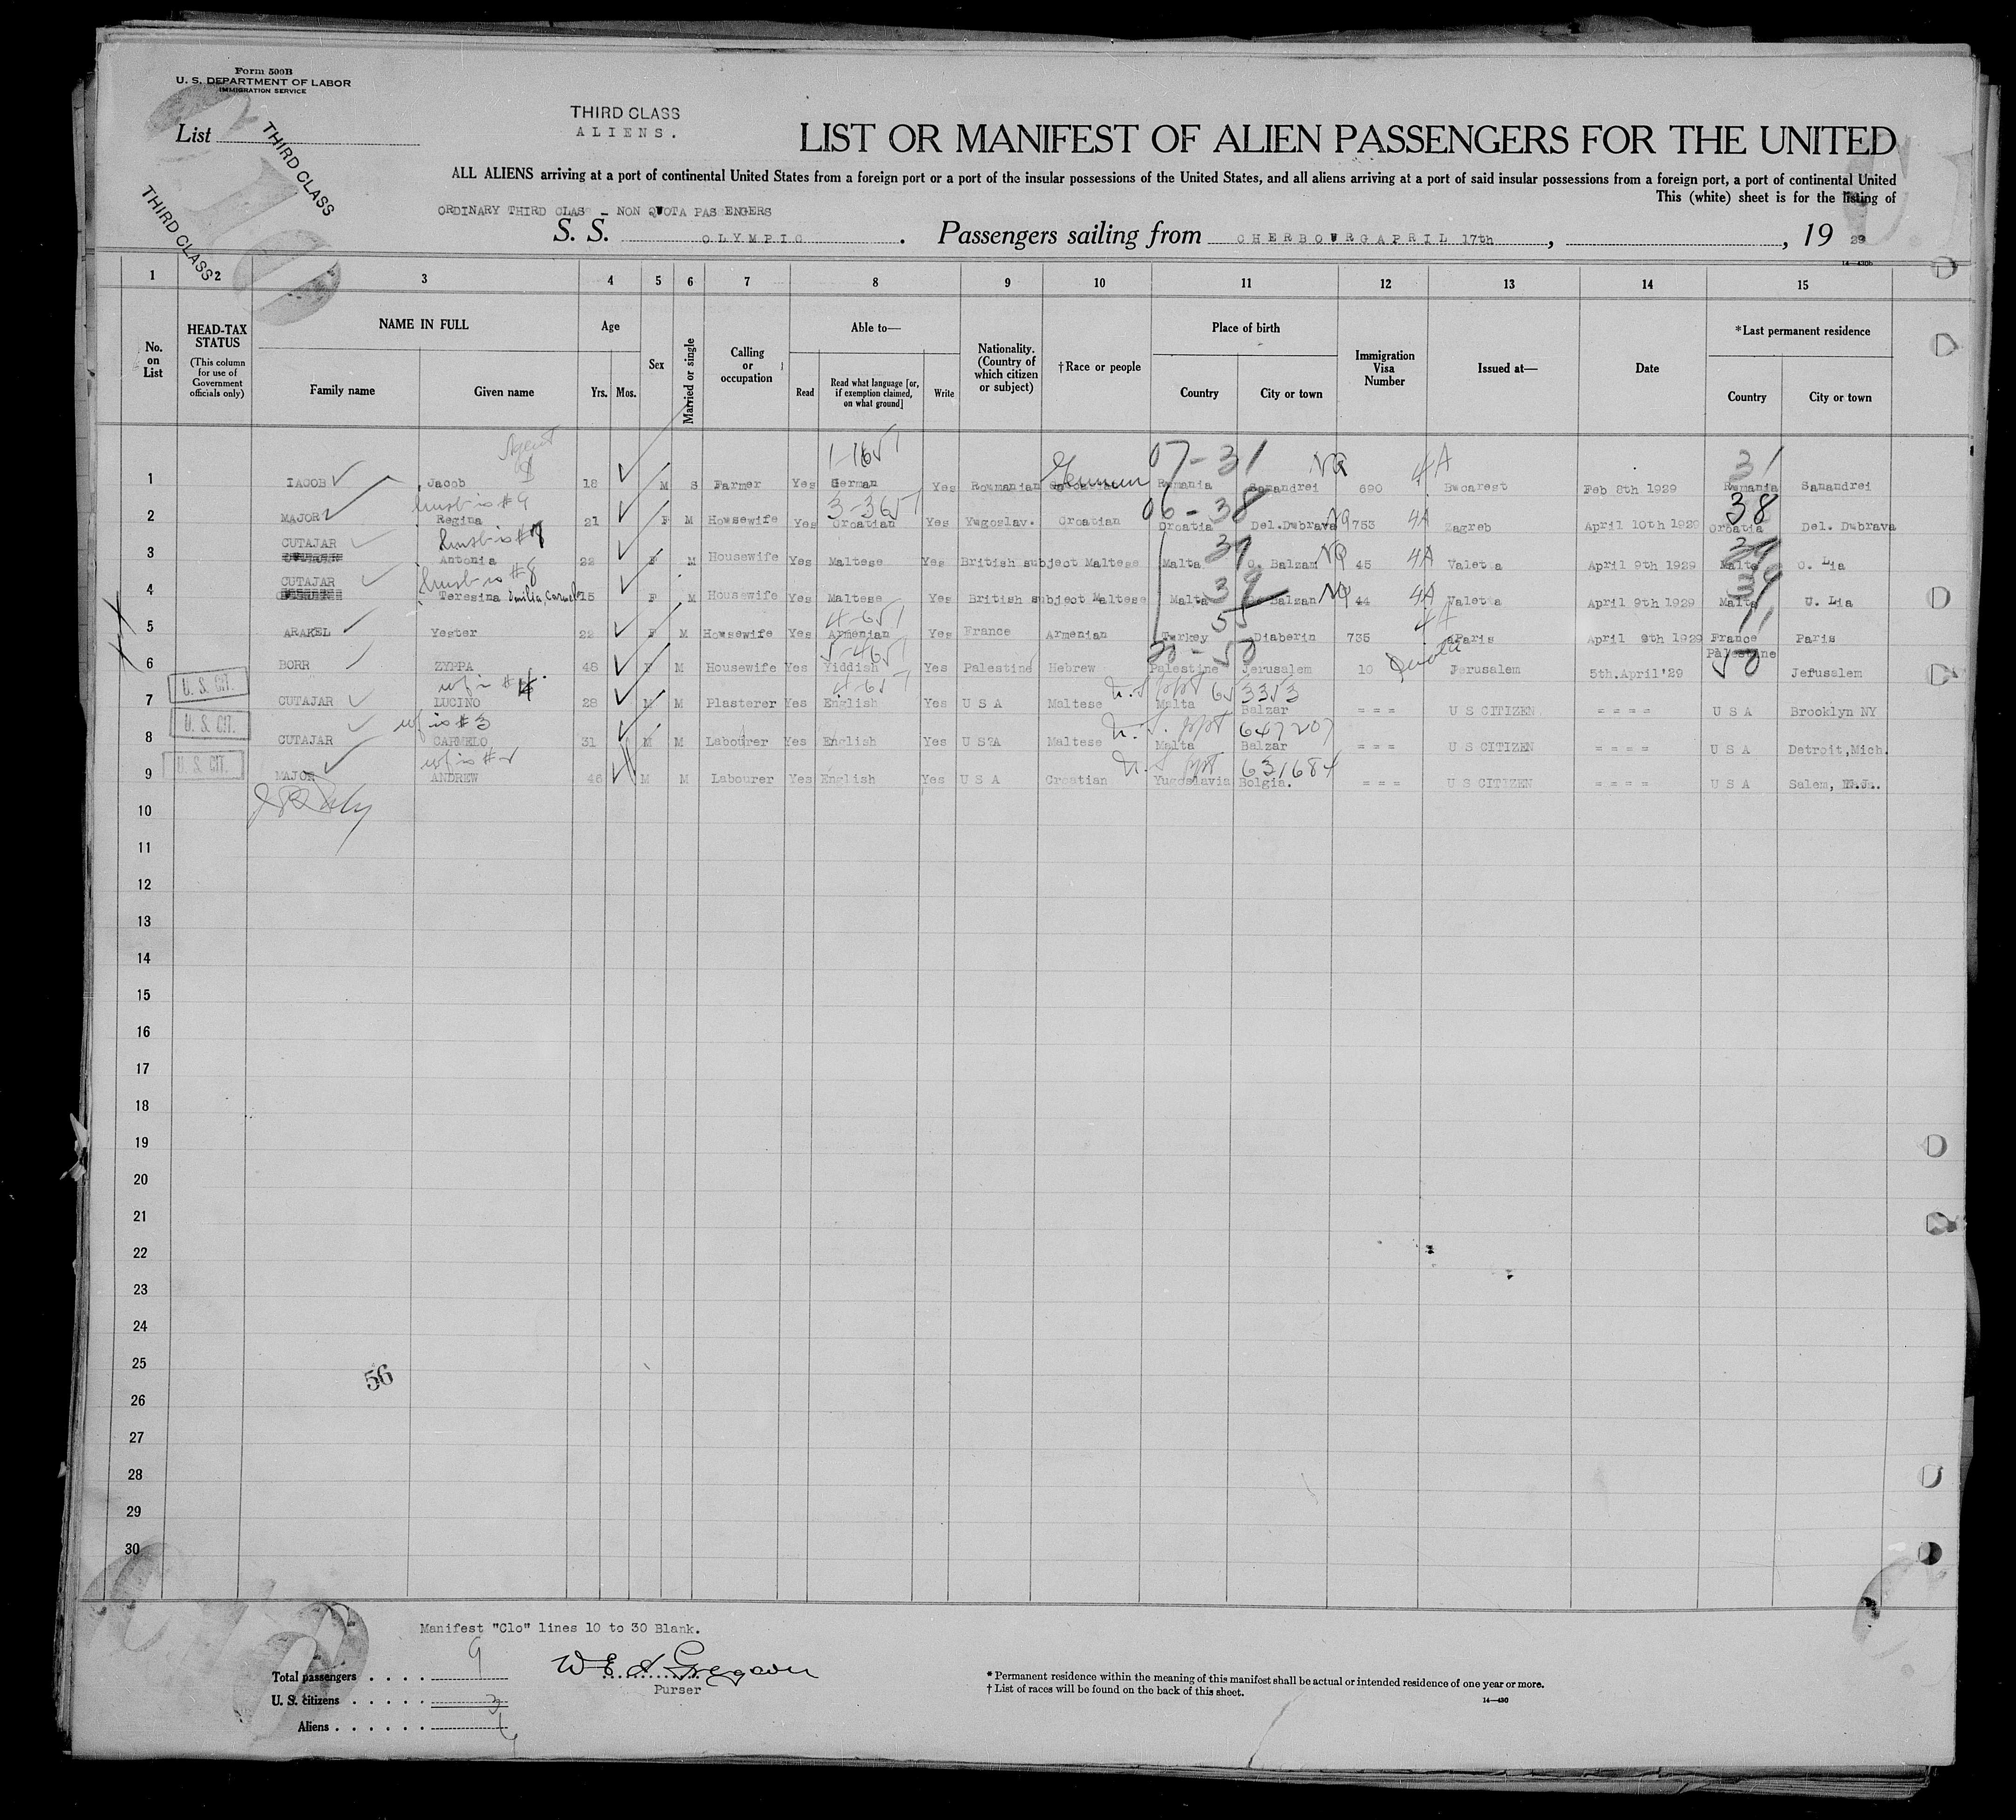 Form 500B
U. S. DEPARTMENT OF LABOR
IMMIGRATION SERVICE
THIRD CLASS
ALIENS.
List
THIRD CLASS
THIRD CLASS
LIST OR MANIFEST OF ALIEN PASSENGERS FOR THE UNITED
ALL ALIENS arriving at a port of continental United States from a foreign port or a port of the insular possessions of the United States, and all aliens arriving at a port of said insular possessions from a foreign port, a port of continental United
This (white) sheet is for the listing of
ORDINARY THIRD CLAS - NON QUOTA PAS ENGERS
S. S. OLYMPIC. Passengers sailing from CHERBOURG APRIL 17th, , 19 29
14—430b
1 2 3 4 5 6 7 8 9 10 11 12 13 14 15
No. on List
HEAD-TAX STATUS
(This column for use of Government officials only)
NAME IN FULL
Family name Given name
Age
Yrs. Mos.
Sex
Married or single
Calling or occupation
Able to—
Read
Read what language [or, if exemption claimed, on what ground]
Write
Nationality. (Country of which citizen or subject)
†Race or people
Place of birth
Country City or town
Immigration Visa Number
Issued at—
Date
*Last permanent residence
Country City or town
1-1651 07-31 NQ 4A 31
1 IACOB Jacob 18 M S Farmer Yes German Yes Roumanian German Rumania Sanandrei 690 Bucarest Feb 8th 1929 Rumania Sanandrei
husb is #9 3-3651 06-38 38
2 MAJOR Regina 21 F M Housewife Yes Croatian Yes Yugoslav. Croatian Croatia Del.Dubrava NQ 753 4A Zagreb April 10th 1929 Croatia Del. Dubrava
3 CUTAJAR Antonia 22 F M Housewife Yes Maltese Yes British subject Maltese Malta C. Balzan NQ 45 4A Valetta April 9th 1929 Malta C. Lia
husb is #8
4 CUTAJAR Teresina Emilia, Carmela 15 F M Housewife Yes Maltese Yes British subject Maltese Malta Balzan NQ 44 4A Valetta April 9th 1929 Malta C. Lia
4-651 55 4A 11
5 ARAKEL Yester 22 F M Housewife Yes Armenian Yes France Armenian Turkey Diaberin 735 Paris April 9th 1929 France Paris
5-4651 50 Quota 50
6 BORR ZYPPA 48 F M Housewife Yes Yiddish Yes Palestine Hebrew Palestine Jerusalem 10 Jerusalem 5th.April'29 Palestine Jerusalem
U. S. CIT. wf is #4 4-657 U.S. ppt 653353
7 CUTAJAR LUCINO 28 M M Plasterer Yes English Yes U S A Maltese Malta Balzar = = = U S CITIZEN = = = = U S A Brooklyn NY
U. S. CIT. wf is #3 U. S. ppt 647207
8 CUTAJAR CARMELO 31 M M Labourer Yes English Yes U S A Maltese Malta Balzar = = = U S CITIZEN = = = = U S A Detroit,Mich.
U. S. CIT. wf is #2 U. S. ppt 631684
9 MAJOR ANDREW 46 M M Labourer Yes English Yes U S A Croatian Yugoslavia Bolgia. = = = U S CITIZEN = = = = U S A Salem, N.J.
10
11
12
13
14
15
16
17
18
19
20
21
22
23
24
25
56
26
27
28
29
30
Manifest "Clo" lines 10 to 30 Blank.
Total passengers . . . . 9
U. S. citizens . . . . . 3
Aliens . . . . . . 6
Purser
* Permanent residence within the meaning of this manifest shall be actual or intended residence of one year or more.
† List of races will be found on the back of this sheet.
14—430